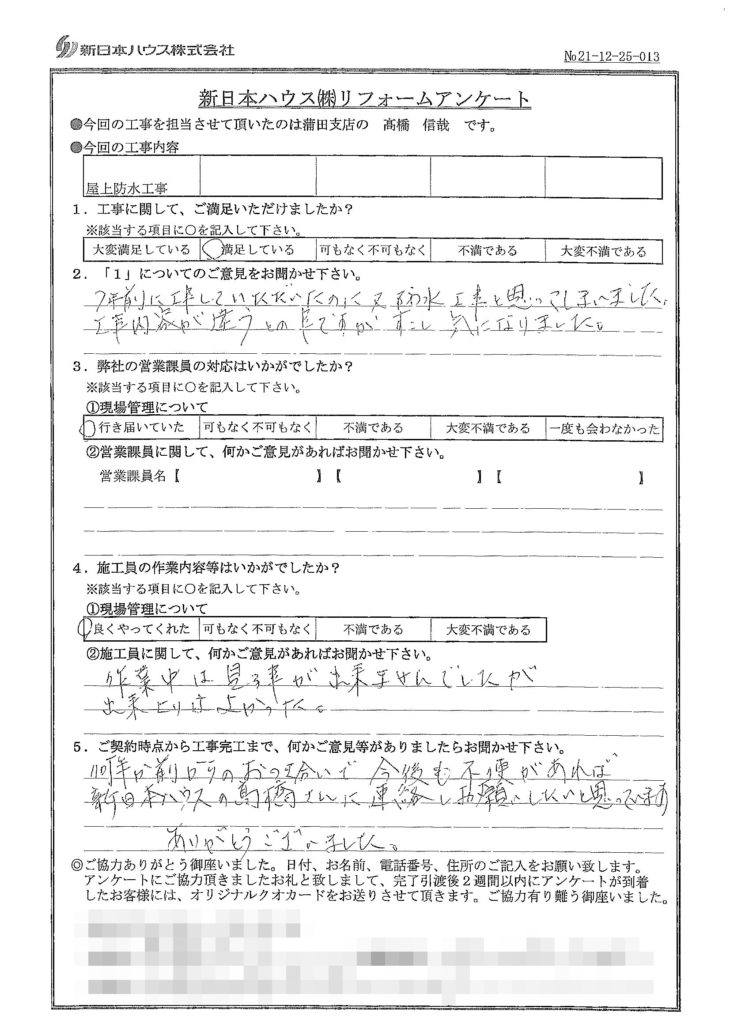 新日本ハウス株式会社
№21-12-25-013
新日本ハウス㈱リフォームアンケート
●今回の工事を担当させて頂いたのは蒲田支店の 髙橋 信哉 です。
●今回の工事内容
屋上防水工事
1．工事に関して、ご満足いただけましたか？
※該当する項目に○を記入して下さい。
大変満足している 満足している 可もなく不可もなく 不満である 大変不満である
2．「1」についてのご意見をお聞かせ下さい。
7年前に工事していただいたのに又防水工事と思ってしまいました。
工事内容が違うとの事ですがすこし気になりました。
3．弊社の営業課員の対応はいかがでしたか？
※該当する項目に○を記入して下さい。
①現場管理について
行き届いていた 可もなく不可もなく 不満である 大変不満である 一度も会わなかった
②営業課員に関して、何かご意見があればお聞かせ下さい。
営業課員名【 】【 】【 】
4．施工員の作業内容等はいかがでしたか？
※該当する項目に○を記入して下さい。
①現場管理について
良くやってくれた 可もなく不可もなく 不満である 大変不満である
②施工員に関して、何かご意見があればお聞かせ下さい。
作業中は見る事が出来ませんでしたが
出来上りはよかった。
5．ご契約時点から工事完工まで、何かご意見等がありましたらお聞かせ下さい。
前からのおつき合いで今後も不便があれば
新日本ハウスの高橋さんに連絡しお願いしたいと思っています
ありがとうございました。
◎ご協力ありがとう御座いました。日付、お名前、電話番号、住所のご記入をお願い致します。
アンケートにご協力頂きましたお礼と致しまして、完了引渡後２週間以内にアンケートが到着
したお客様には、オリジナルクオカードをお送りさせて頂きます。ご協力有り難う御座いました。